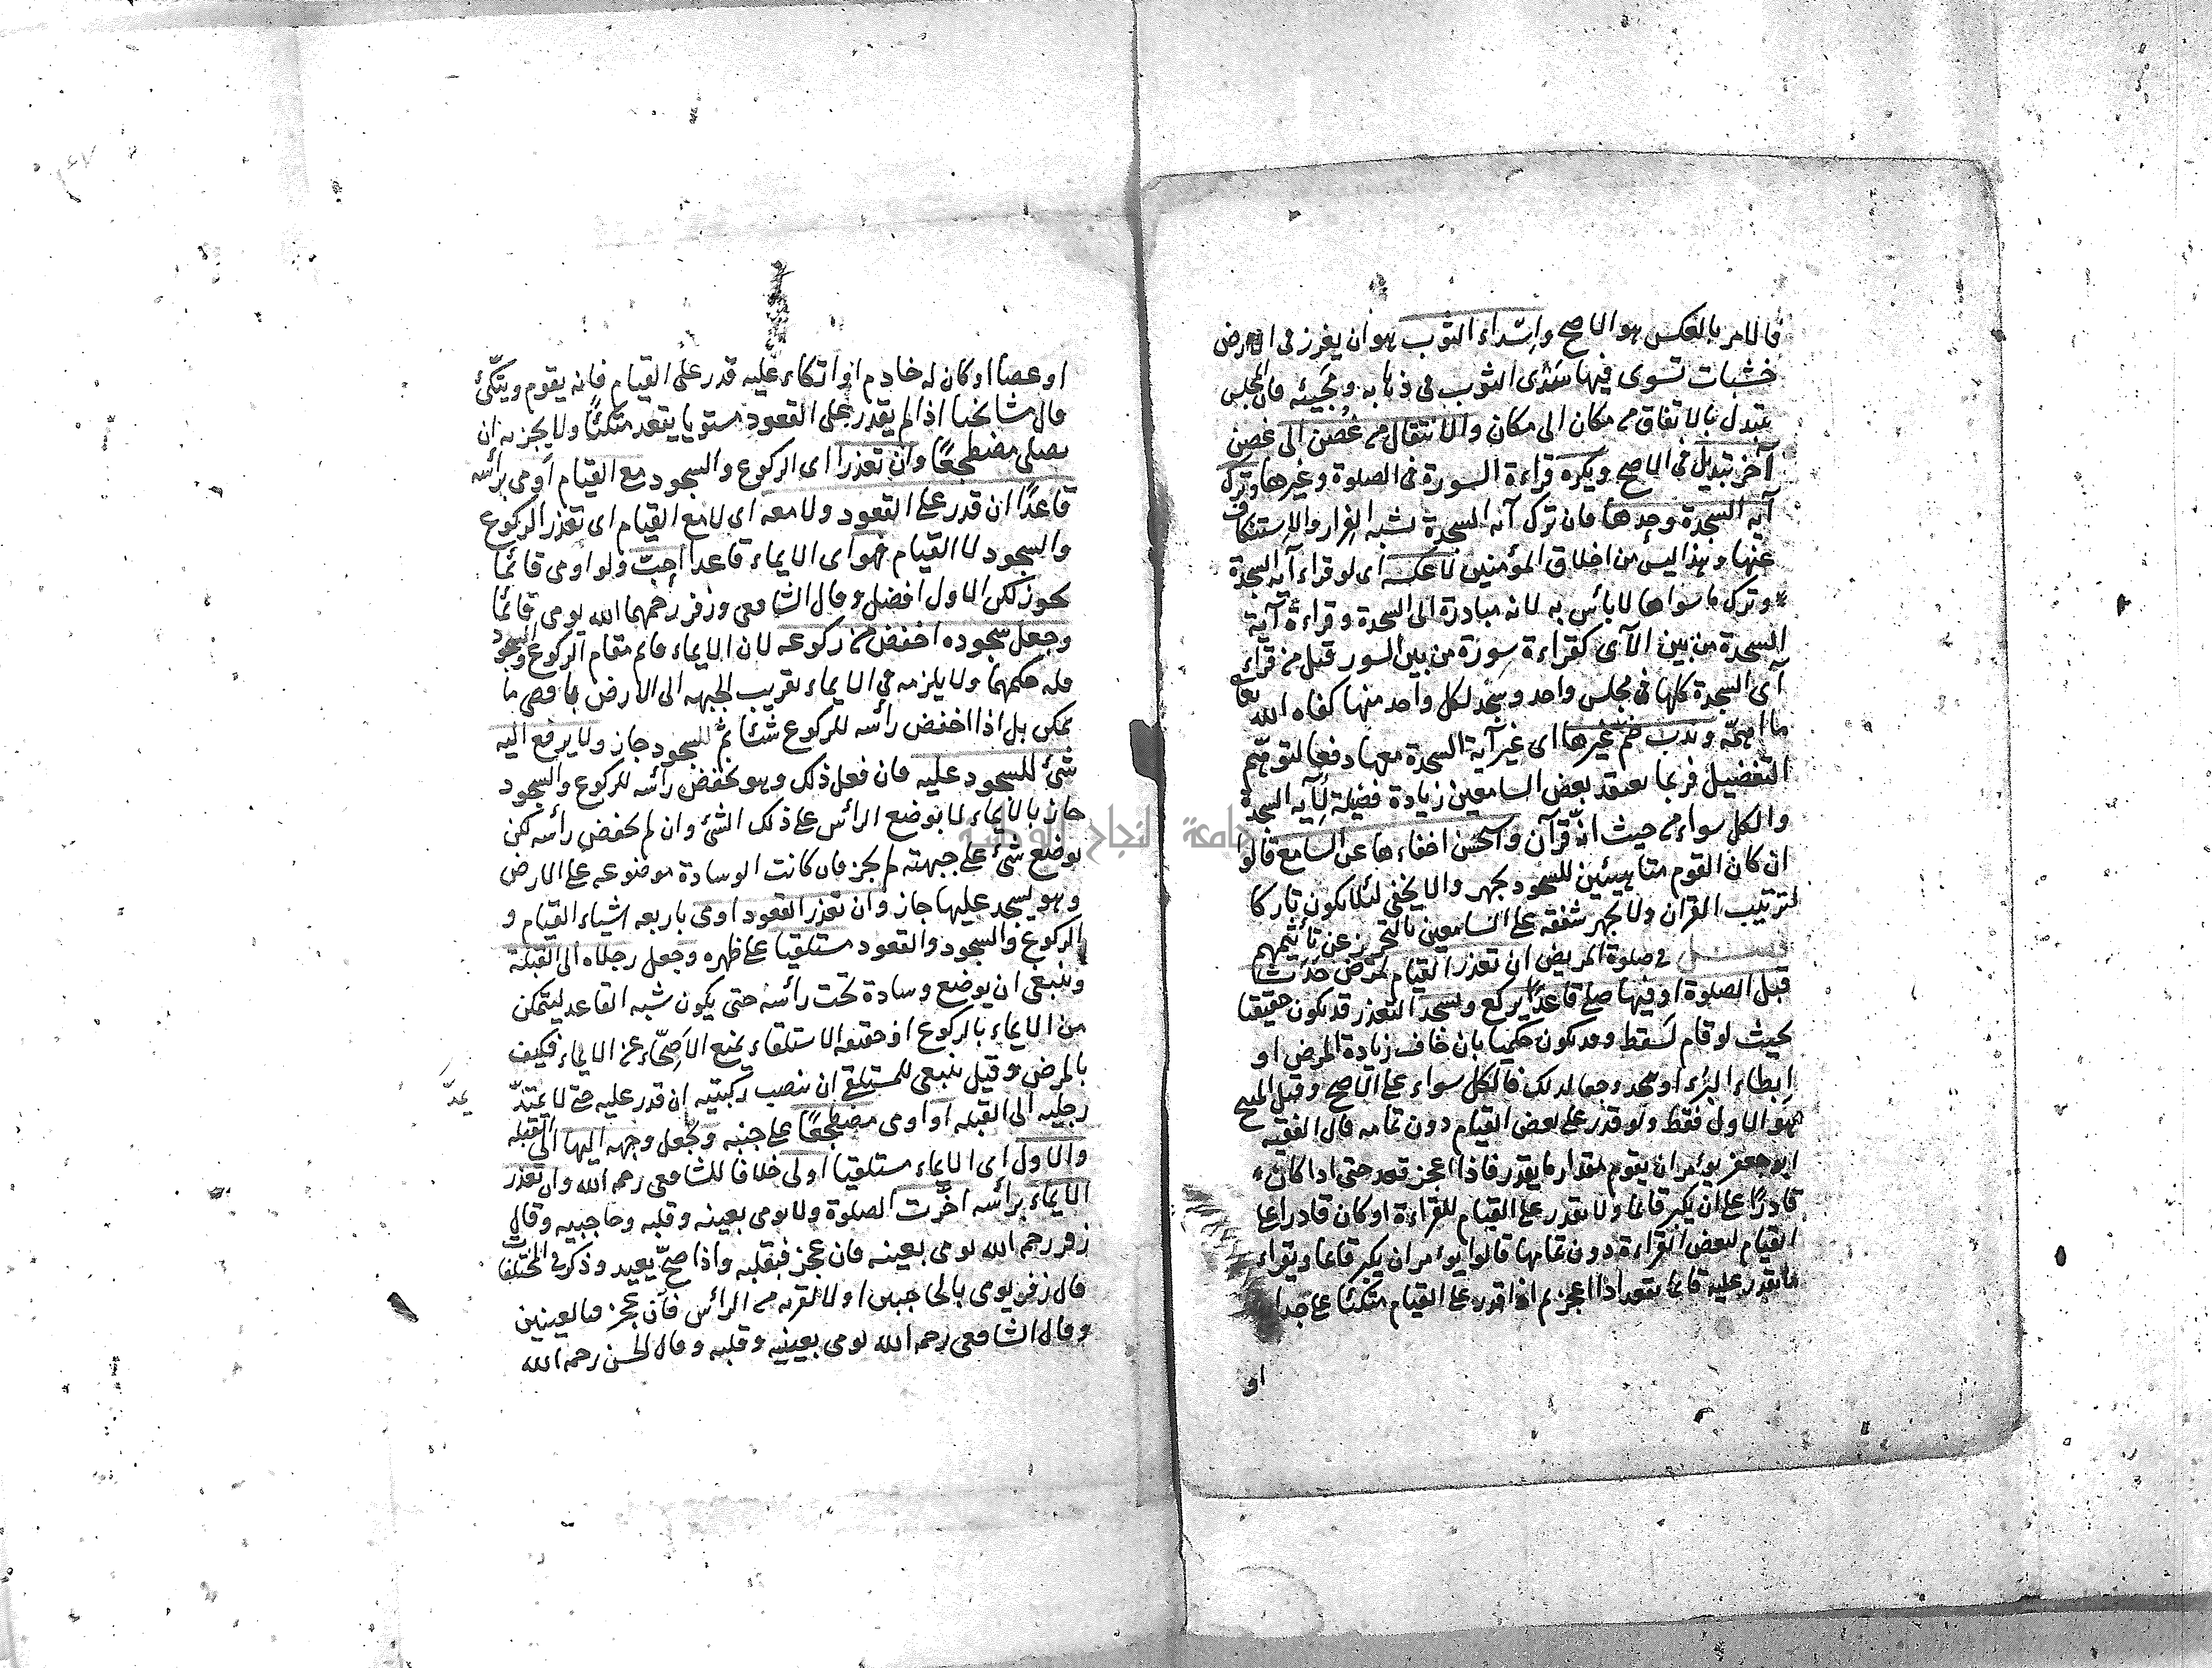 فالامر بالعكس هو الاصح واسداء الثوب هو ان يغرز فى الارض
خشبات تسوى فيها سَدْى الثوب فى ذهابه ومجيئه فان المجلس
يتبدل بالاتفاق من مكان الى مكان والانتقال من غُصْن الى غصن
آخر تبديل فى الاصح ويكره قراءة السورة فى الصلوة وغيرها وترك
آية السجدة وحدها فان ترك آية السجدة لشبه الفرار والاستنكاف
عنها وهذا ليس من اخلاق المؤمنين لا عكسه اى لو قراء آية السجدة
وترك ما سواها لا بأس به لانه مبادرة الى السجدة وقراءة آية
السجدة من بين الآى كقراءة سورة من بين السور قيل من قراء
آى السجدة كلها فى مجلس واحد وسجد لكل واحد منها كفاه الله تعالى
ما اهمّه وندب ضم غيرها اى غير آية السجدة معها دفعا لتوهّم
التفضيل فربما يعتقد بعض السامعين زيادة فضيلة لآية السجدة
والكل سواء من حيث انه قرآن واستحسن اخفاءها عن السامع قالوا
ان كان القوم متاهيئين للسجود يجهر والا يخفى لئلا يكون تاركا
لترتيب القران ولا يجهر شفقة على السامعين بالتحرز عن تأثيمهم
فصل فى صلوة المريض ان تعذر القيام لمرض حدث
قبل الصلوة او فيها صلى قاعدًا يركع ويسجد التعذر قد يكون حقيقيا
بحيث لو قام لسقط وقد يكون حكميا بان خاف زيادة المرض او
ابطاء البُرْء او يجد وجعا لذلك فالكل سواء على الاصح وقيل المبيح
هو الاول فقط ولو قدر على بعض القيام دون تمامه قال الفقيه
ابو جعفر يؤمر ان يقوم مقدار ما يقدر فاذا عجز قعد حتى اذا كان
قادرًا على ان يكبر قائما ولا يقدر على القيام للقراءة او كان قادرا على
القيام لبعض القراءة دون تمامها قالوا يؤمر ان يكبر قائما ويقراء
ما يقدر عليه قائما يقعد اذا عجز ثم اذا قدر على القيام متكئا على جدار
او
او عصا او كان له خادم او اتكاء عليه قدر على القيام فانه يقوم ويتّكئ
قال مشايخنا اذا لم يقدر على القعود مستويا يقعد متكئًا ولا يجزيه ان
يصلى مضطجعًا وان تعذرا اى الركوع والسجود مع القيام اومى برأسه
قاعدًا ان قدر على القعود ولا معه اى لا مع القيام اى تعذر الركوع
والسجود لا القيام فهو اى الايماء قاعدا احبّ ولو اومى قائما
يجوز لكن الاول افضل وقال الشافعى وزفر رحمهما الله يومى قائمًا
وجعل سجوده اخفض من ركوعه لان الايماء قائم مقام الركوع والسجود
فله حكمهما ولا يلزمه فى الايماء تقريب الجبهة الى الارض باقصى ما
يمكن بل اذا اخفض رأسه للركوع شئا ثم للسجود جاز ولا يرفع اليه
شئ للسجود عليه فان فعل ذلك وهو يخفض رأسه للركوع والسجود
جاز بالايماء لا بوضع الرأس على ذلك الشئ وان لم يخفض رأسه لكن
يوضع شئ على جبهته لم يجز فان كانت الوسادة موضوعه على الارض
وهو يسجد عليها جاز وان تعذر القعود اومى باربعه اشياء القيام و
الركوع والسجود والقعود مستلقيا على ظهره وجعل رجلاه الى القبلة
وينبغى ان يوضع وسادة تحت رأسه حتى يكون شبه القاعد ليتمكن
من الايماء بالركوع اذ حقيقه الاستلقاء يمنع الاَصِحّاء عن الايماء فكيف
بالمرض وقيل ينبغى للمستلقى ان ينصب ركبتيه ان قدر عليه حتى لا يمتدّ
يمدّ
رجليه الى القبله او اومى مضطجعًا على جنبه ويجعل وجهه اليها الى القبله
والاول اى الايماء مستلقيا اولى خلافا للشافعى رحمه الله وان تعذر
الايماء برأسه اخّرت الصلوة ولا يومى بعينه وقلبه وحاجبيه وقال
زفر رحمه الله يومى بعينه فان عجز فبقلبه واذا صحّ يعيد وذكر فى المختلفات
قال زفر يومى بالحاجبين اولا لقربه من الرأس فان عجز فبالعينين
وقال الشافعى رحمه الله يومى بعينيه وقلبه وقال الحسن رحمه الله
جامعة النجاح الوطنية